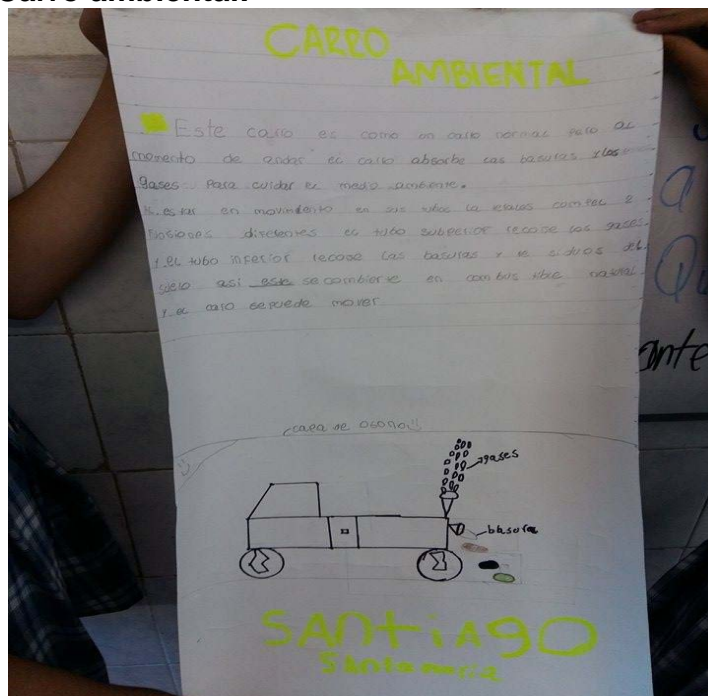 CARRO
AMBIENTAL
Este carro es como un carro normal pero al
momento de andar el carro absorbe las basuras y los
gases para cuidar el medio ambiente.
estar en movimiento en sus tubos la cuales cumplen 2
diferentes el tubo superior recoge los gases
y el tubo inferior recoge las basuras y re siduos del
suelo asi este se combierte en combus tible natural
y el carro se puede mover
¿capa de osono!!
gases
basura
SANtiAgO
Santamaria
ante